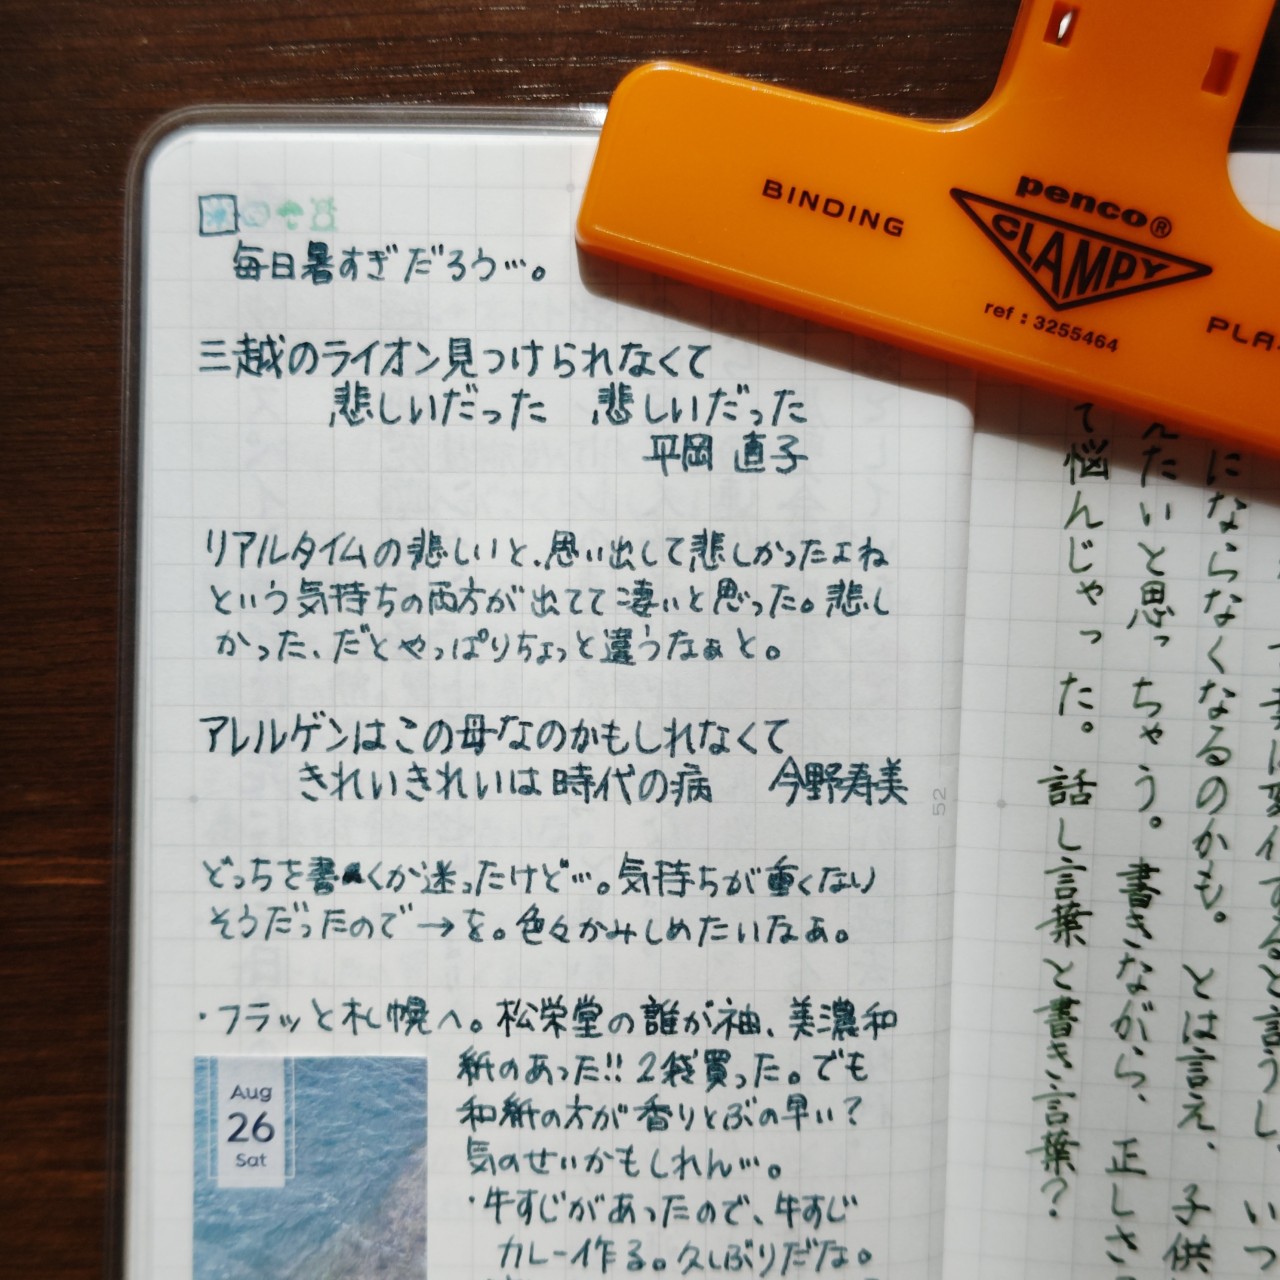 毎日暑すぎだろう…。
三越のライオン見つけられなくて
悲しいだった 悲しいだった
平岡 直子
リアルタイムの悲しいと、思い出して悲しかったよね
という気持ちの両方が出てて凄いと思った。悲し
かった、だとやっぱりちょっと違うなぁと。
アレルゲンはこの母なのかもしれなくて
きれいきれいは時代の病 今野寿美
どっちを書くか迷ったけど…。気持ちが重くなり
そうだったので→を。色々かみしめたいなぁ。
・フラッと札幌へ。松栄堂の誰が袖、美濃和
紙のあった!! 2袋買った。でも
和紙の方が香りとぶの早い?
気のせいかもしれん…。
・牛すじがあったので、牛すじ
カレー作る。久しぶりだな。
Aug
26
Sat
52
BINDING
penco®
CLAMPY
ref : 3255464
PLA
にならなくなるのかも。とは言え、子供
えたいと思っちゃう。書きながら、正しさ
て悩んじゃった。話し言葉と書き言葉?